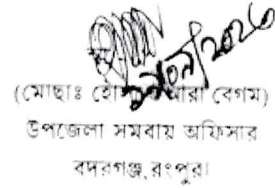 (মোছাঃ হোসনে আরা বেগম)
উপজেলা সমবায় অফিসার
বদরগঞ্জ,রংপুর।